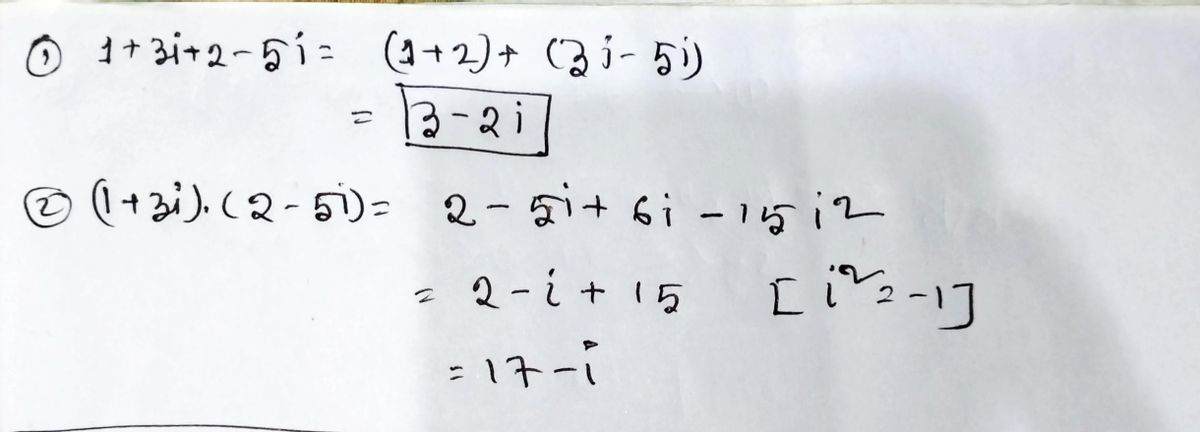 ① 1+3i+2-5i = (1+2)+ (3i-5i)
= 3-2i
② (1+3i).(2-5i)= 2-5i+6i-15i²
= 2-i+15 [i²=-1]
= 17-i